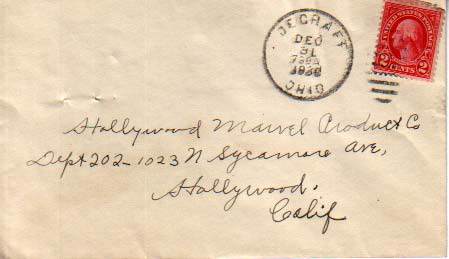 DECRAFT
DEC
31
OHIO
UNITED STATES POSTAGE
2 CENTS 2
Hollywood Marvel Product Co
Dept 202-1023 N Sycamore Ave,
Hollywood.
Calif